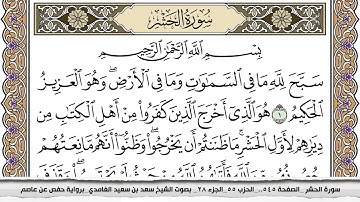 سُورَةُ الحَشْرِ
بِسْمِ اللَّهِ الرَّحْمَٰنِ الرَّحِيمِ
سَبَّحَ لِلَّهِ مَا فِي السَّمَٰوَٰتِ وَمَا فِي الْأَرْضِ ۖ وَهُوَ الْعَزِيزُ
الْحَكِيمُ ۝١ هُوَ الَّذِي أَخْرَجَ الَّذِينَ كَفَرُوا مِنْ أَهْلِ الْكِتَٰبِ مِن
دِيَٰرِهِمْ لِأَوَّلِ الْحَشْرِ ۚ مَا ظَنَنتُمْ أَن يَخْرُجُوا ۖ وَظَنُّوا أَنَّهُم مَّانِعَتُهُمْ
سورة الحشر_ الصفحة ٥٤٥_ الحزب ٥٥_ الجزء ٢٨_ بصوت الشيخ سعد بن سعيد الغامدي_ برواية حفص عن عاصم